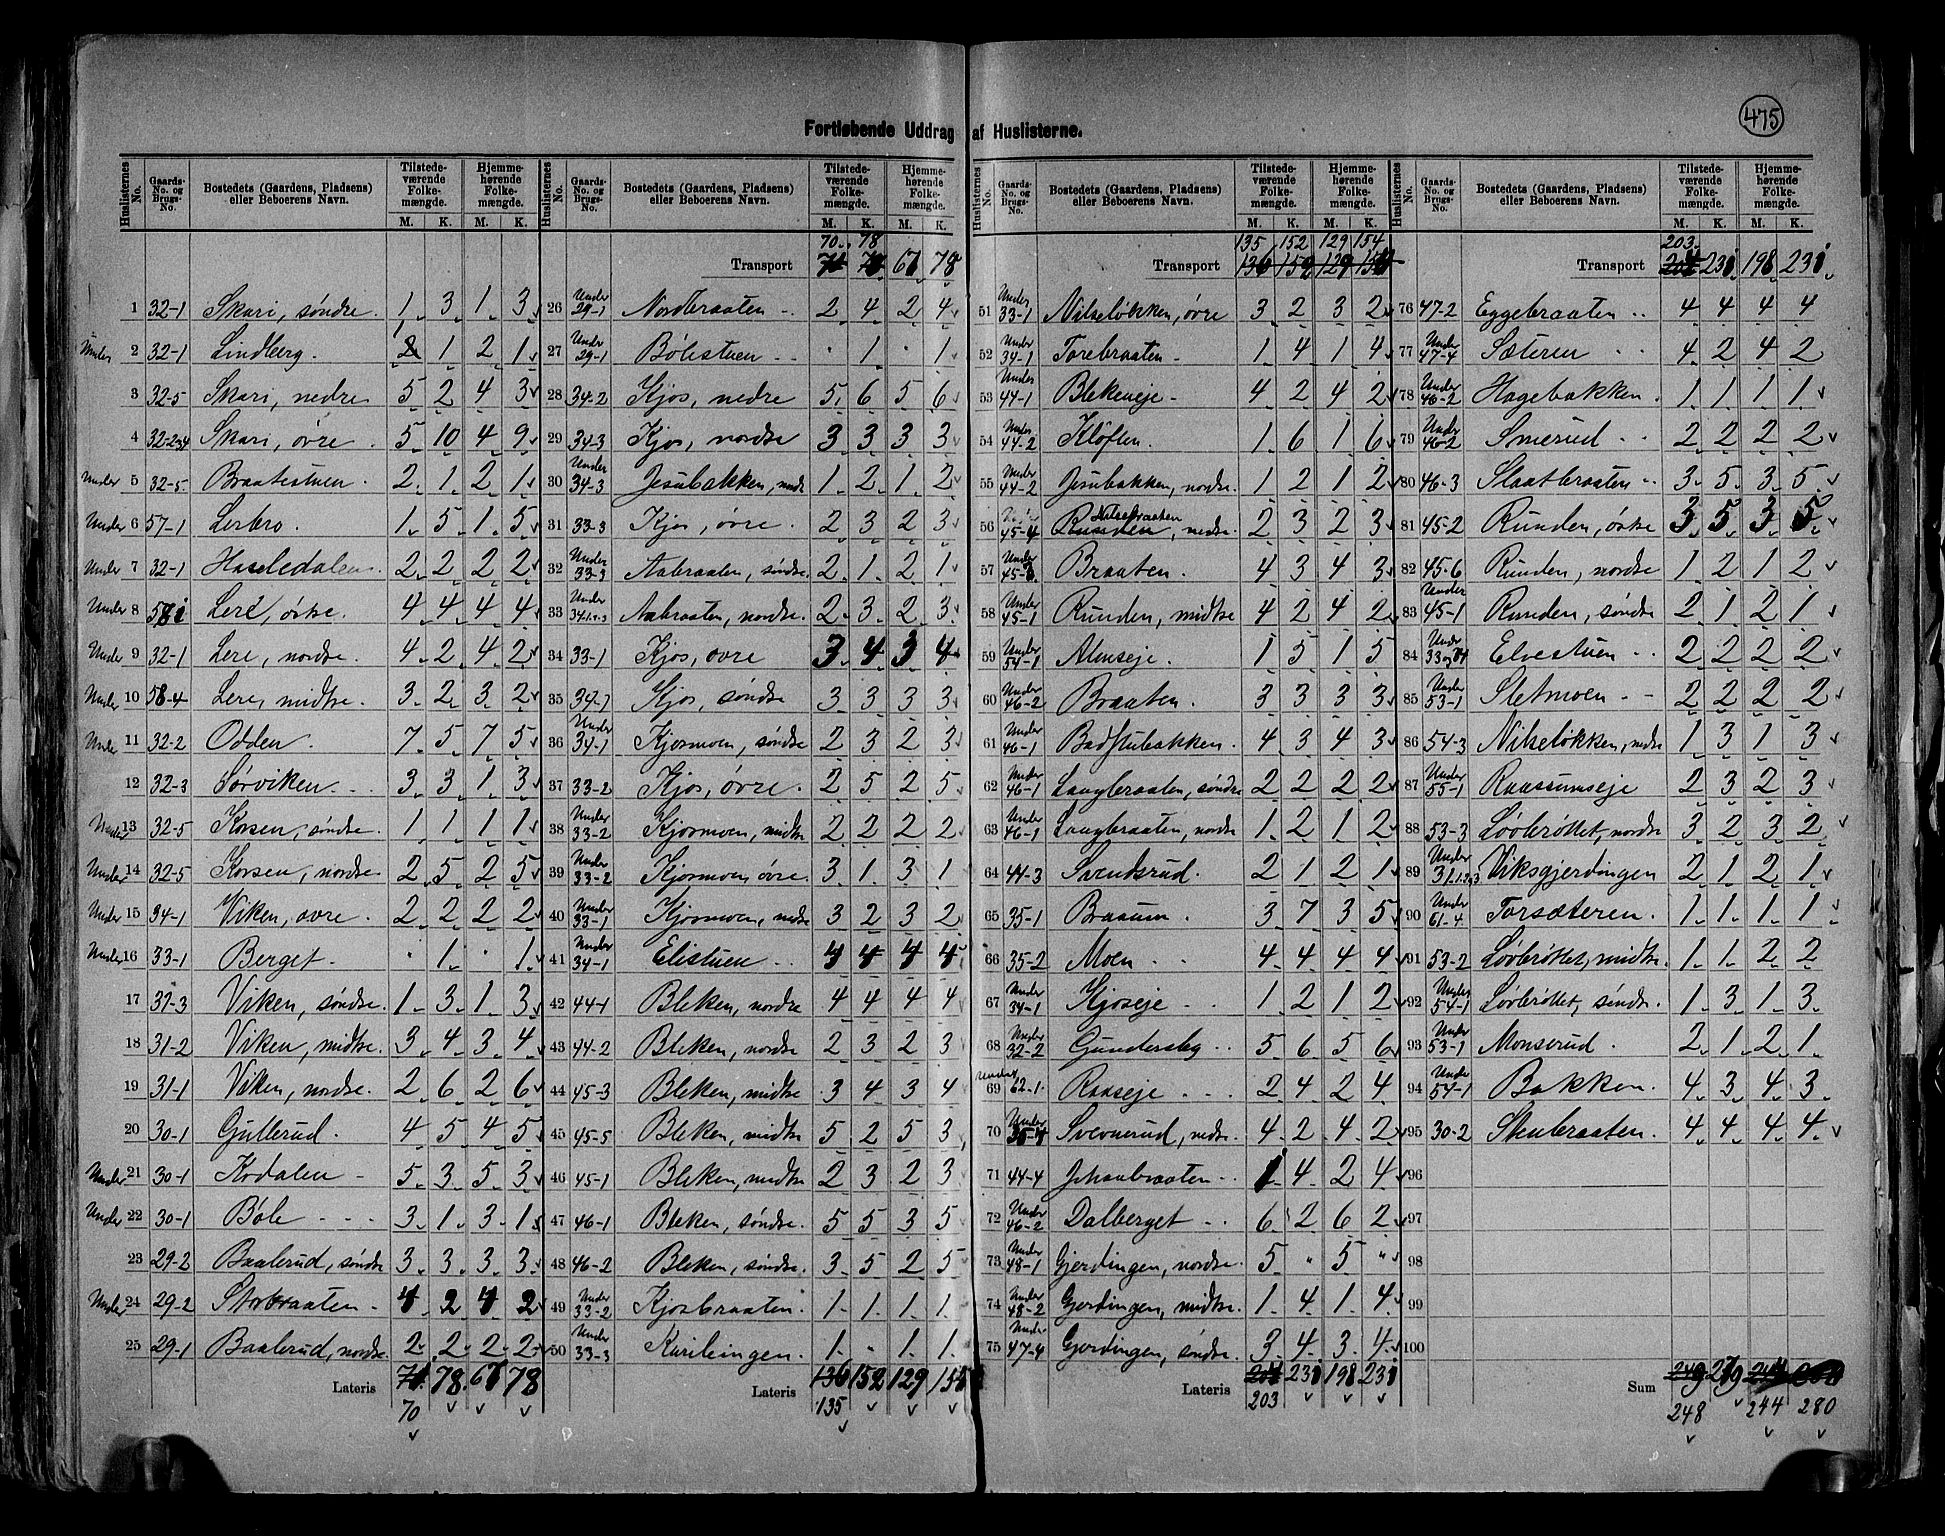 475
Fortløbende Uddrag af Huslisterne.
Huslisternes No. | Gaards-No. og Brugs-No. | Bostedets (Gaardens, Pladsens) eller Beboerens Navn. | Tilstedeværende Folkemængde. M. K. | Hjemmehørende Folkemængde. M. K.
1 32-1 Skari, søndre. 1 3 1 3
Under 2 32-1 Lindberg. 2 1 2 1
3 32-5 Skari, nedre 5 2 4 3
4 32-2,4 Skari, øvre. 5 10 4 9
Under 5 32-5. Braatestuen 2 1 2 1
Under 6 57-1 Lerbro. 1 5 1 5
Under 7 32-1 Hasledalen 2 2 2 2
Under 8 Lere, østre. 4 4 4 4
Under 9 32-1 Lere, nordre. 4 2 4 2
Under 10 58-4 Lere, midtre. 3 2 3 2
Under 11 32-2 Odden. 7 5 7 5
12 32-3 Sørviken 3 3 1 3
Under 13 32-5 Korsen, søndre. 1 1 1 1
Under 14 32-5 Korsen, nordre 2 5 2 5
Under 15 34-1 Viken, øvre. 2 2 2 2
Under 16 33-1 Berget. " 1 " 1
17 31-3 Viken, søndre. 1 3 1 3
18 31-2 Viken, midtre. 3 4 3 4
19 31-1 Viken, nordre. 2 6 2 6
20 30-1 Gullerud. 4 5 4 5
Under 21 30-1 Kodalen 5 3 5 3
Under 22 30-1 Bøle 3 1 3 1
23 29-2 Baalerud, søndre 3 3 3 3
Under 24 29-2 Storbraaten 4 2 4 2
25 29-1 Baalerud, nordre. 2 2 2 2
Lateris 71 78 67 78
70
Huslisternes No. | Gaards-No. og Brugs-No. | Bostedets (Gaardens, Pladsens) eller Beboerens Navn. | Tilstedeværende Folkemængde. M. K. | Hjemmehørende Folkemængde. M. K.
70 78
Transport 67 78
26 Under 29-1 Nordbraaten 2 4 2 4
27 Under 29-1 Bølestuen " 1 " 1
28 34-2 Kjos, nedre 5 6 5 6
29 34-3 Kjos, nordre 3 3 3 3
30 Under 34-3 Jesubakken, nedre 1 2 1 2
31 33-3 Kjos, øvre. 2 3 2 3
32 Under 33-3 Aabraaten, søndre. 2 1 2 1
33 Under Aabraaten, nordre. 2 3 2 3
34 33-1 Kjos, øvre 3 4 3 4
35 34-1 Kjos, søndre 3 3 3 3
36 Under 34-1 Kjosmoen, søndre 2 3 2 3
37 33-2 Kjos, øvre. 2 5 2 5
38 Under 33-2 Kjosmoen, midtre 2 2 2 2
39 Under 33-2 Kjosmoen øvre. 3 1 3 1
40 Under 33-1 Kjosmoen, nedre 3 2 3 2
41 Under 34-1 Elistuen 4 4 4 4
42 44-1 Bleken, nordre 4 4 4 4
43 44-2 Bleken, nordre 2 3 2 3
44 45-3 Bleken, midtre 3 4 3 4
45 45-5 Bleken, midtre 5 2 5 3
46 45-1 Bleken, midtre 2 3 2 3
47 46-1 Bleken, søndre. 5 5 3 5
48 46-2 Bleken, søndre. 3 5 2 5
49 Under 33-2 Kjosbraaten. 1 1 1 1
50 Under 33-3 1 " 1 1
Lateris 136 152 129 154
135
Huslisternes No. | Gaards-No. og Brugs-No. | Bostedets (Gaardens, Pladsens) eller Beboerens Navn. | Tilstedeværende Folkemængde. M. K. | Hjemmehørende Folkemængde. M. K.
135 152 129 154
Transport 136 152 129 154
51 Under 33-1 Nilseløkken, øvre 3 2 3 2
52 Under 34-1 Torebraaten 1 4 1 4
53 Under 44-1 Blekeneje 4 2 4 2
54 Under 44-2 Kløften. 1 6 1 6
55 Under 44-2 Jesubakken, nordre. 1 2 1 2
56 45-4 nedre. 2 3 2 3
57 Under Braaten. 4 3 4 3
58 Under 45-1 Runden, midtre 4 2 4 2
59 Under 54-1 Almseje. 1 5 1 5
60 Under 46-2 Braaten. 3 3 3 3
61 Under 46-1 Badstubakken. 4 3 4 3
62 Under 46-1 Langbraaten, søndre 2 2 2 2
63 Under 46-1 Langbraaten, nordre 1 2 1 2
64 44-3 Svendsrud. 2 1 2 1
65 35-1 Braaum. 3 7 3 5
66 35-2 Moen 4 4 4 4
67 Under 34-1 Kjoseje 1 2 1 2
68 Under 32-2 Gundersby 5 6 5 6
Under 69 62-1 Raaseje 2 4 2 4
70 Under Svennerud, nedre. 4 2 4 2
71 44-4 Johanbraaten 1 4 2 4
72 Under 46-2 Dalberget 6 2 6 2
73 Under 48-1 Gjerdingen, nordre. 5 " 5 "
74 Under 48-2 Gjerdingen, midtre. 1 4 1 4
75 Under 47-4 Gjerdingen, søndre. 3 4 3 4
Lateris 204 231 198 231
203
Huslisternes No. | Gaards-No. og Brugs-No. | Bostedets (Gaardens, Pladsens) eller Beboerens Navn. | Tilstedeværende Folkemængde. M. K. | Hjemmehørende Folkemængde. M. K.
203
Transport 204 231 198 231
76 47-2 Eggebraaten 4 4 4 4
77 Under 47-4 Sæteren 4 2 4 2
78 Under 46-2 Hagebakken 1 1 1 1
79 Under 46-2 Smerud 2 2 2 2
80 46-3 Slaatbraaten 3 5 3 5
81 45-2 Runden, østre 3 5 3 5
82 45-6 Runden, nordre 1 2 1 2
83 Under 45-1 Runden, søndre 2 1 2 1
84 Under Elvestuen 2 2 2 2
85 Under 53-1 Sletmoen 2 2 2 2
86 54-3 Nilseløkken, nedre 1 3 1 3
87 Under 55-1 Raassumseje 2 3 2 3
88 53-3 Løvbrøttet, nordre 3 2 3 2
89 Under 31.1.2.3 Viksgjerdingen 2 1 2 1
90 Under 61-4 Torsæteren. 1 1 1 1
91 53-2 Løvbrøttet, midtre. 1 1 2 2
92 Under 54-1 Løvbrøttet, søndr. 1 3 1 3
93 Under 53-1 Monserud. 2 1 2 1
94 Under 54-1 Bakken. 4 3 4 3
95 30-2 Skubraaten. 4 4 4 4
96
97
98
99
100
Sum 249 279 244
248 244 280